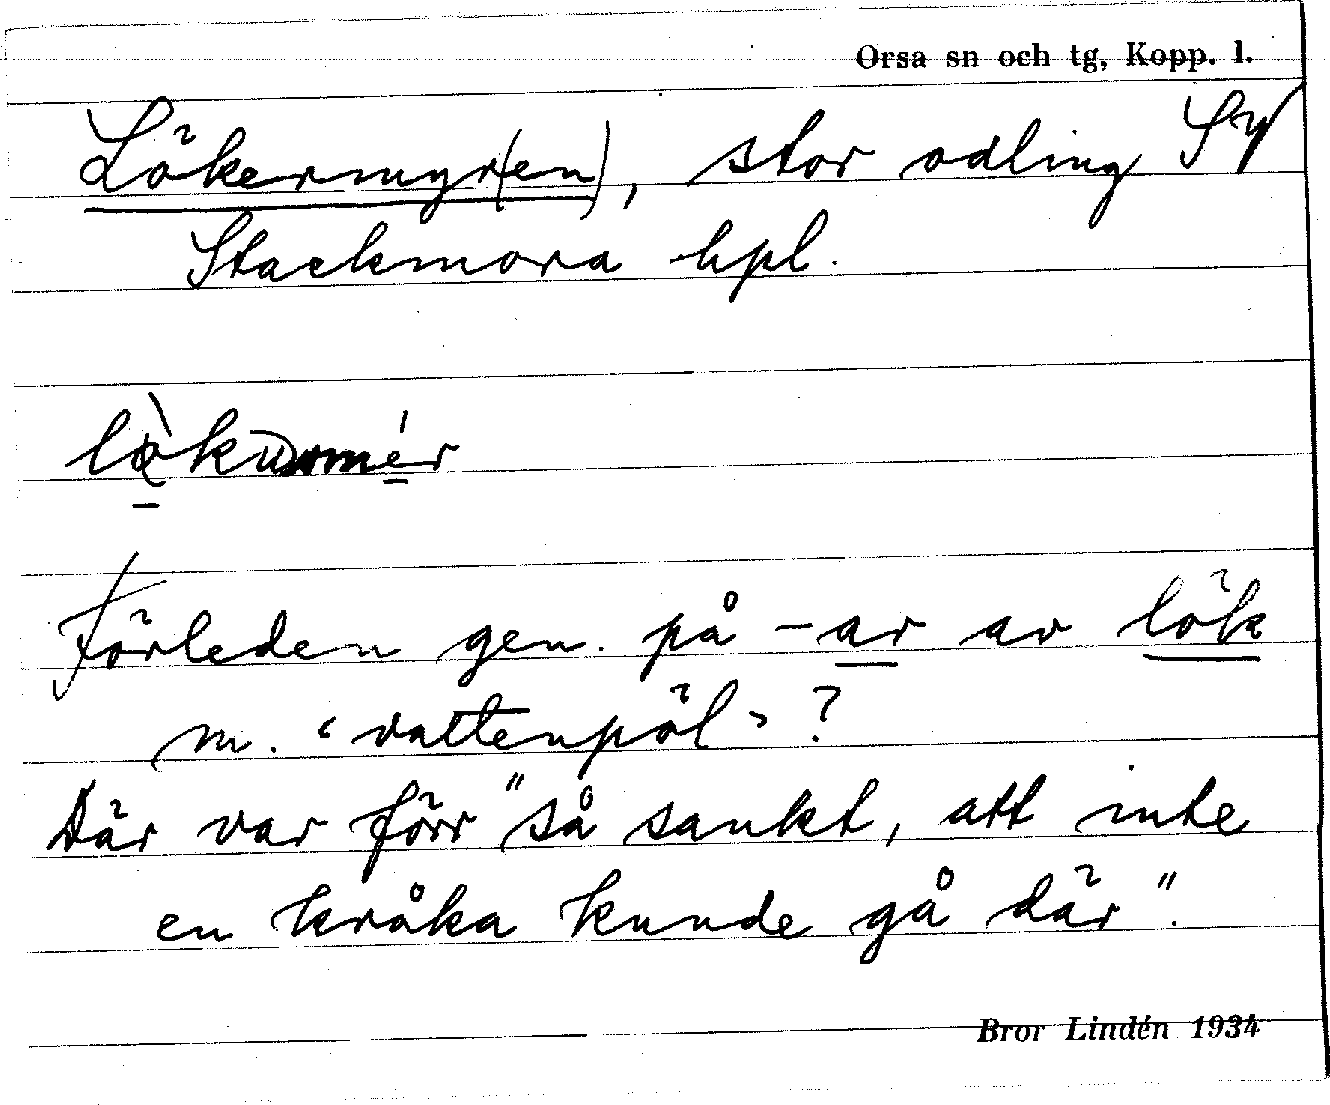 Orsa sn och tg, Kopp. l.
Lökermyr(en), stor odling SV
Stackmora hpl.
Förleden gen. på -ar av lök
m. ‘vattenpöl’?
Där var förr "så sankt, att inte
en kråka kunde gå där".
Bror Lindén 1934